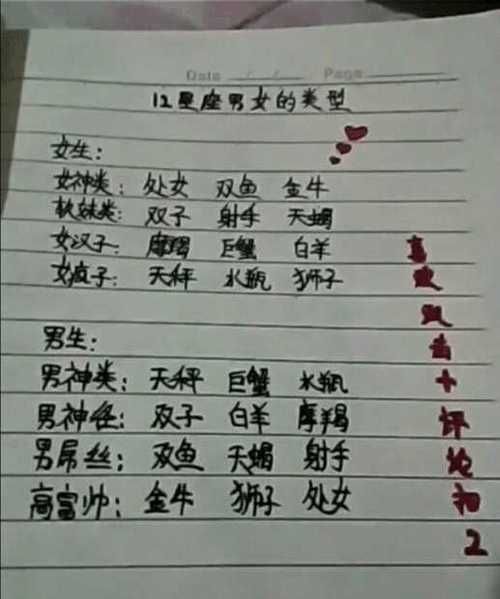 Date / / Page
12星座男女的类型
女生:
女神类: 处女 双鱼 金牛
软妹类: 双子 射手 天蝎
女汉子: 摩羯 巨蟹 白羊
女疯子: 天秤 水瓶 狮子
男生:
男神类: 天秤 巨蟹 水瓶
男神经: 双子 白羊 摩羯
男屌丝: 双鱼 天蝎 射手
高富帅: 金牛 狮子 处女
喜欢双击+评论扣2